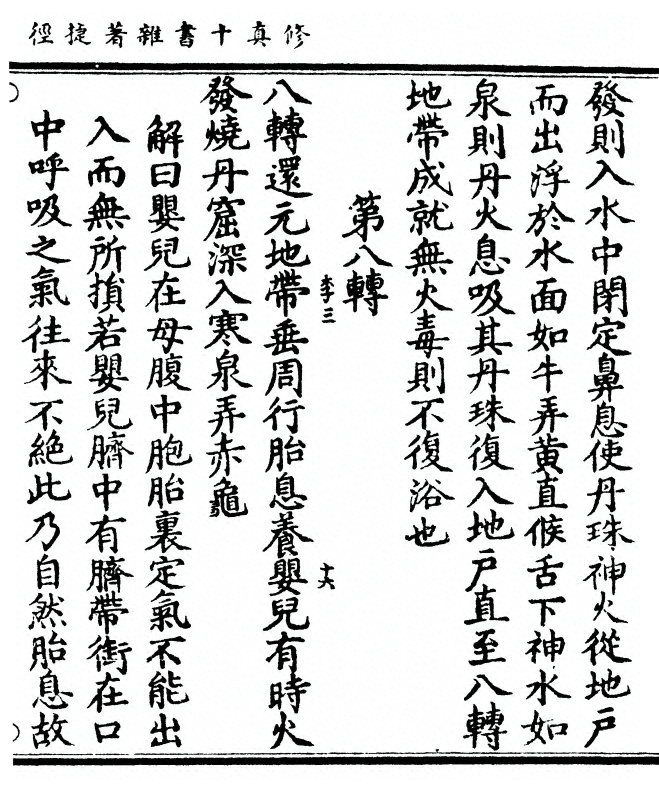 修真十書雜著捷徑
發則入水中閉定鼻息使丹珠神火從地戶
而出浮於水面如牛弄黃直候舌下神水如
泉則丹火息吸其丹珠復入地戶直至八轉
地帶成就無火毒則不復浴也
第八轉
李三
十六
八轉還元地帶垂周行胎息養嬰兒有時火
發燒丹窟深入寒泉弄赤龜
解曰嬰兒在母腹中胞胎裏定氣不能出
入而無所損若嬰兒臍中有臍帶銜在口
中呼吸之氣往來不絕此乃自然胎息故